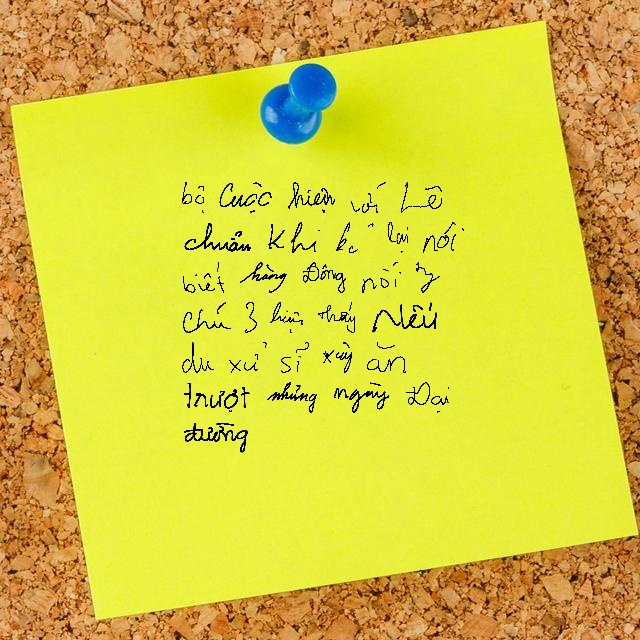 bộ Cuộc hiện với Lê
chuẩn Khi kể lại nói
biết hàng Đông nói ý
chú 3 hiện thấy Nếu
du xử sĩ xử ăn
trượt những ngày Đại
đường